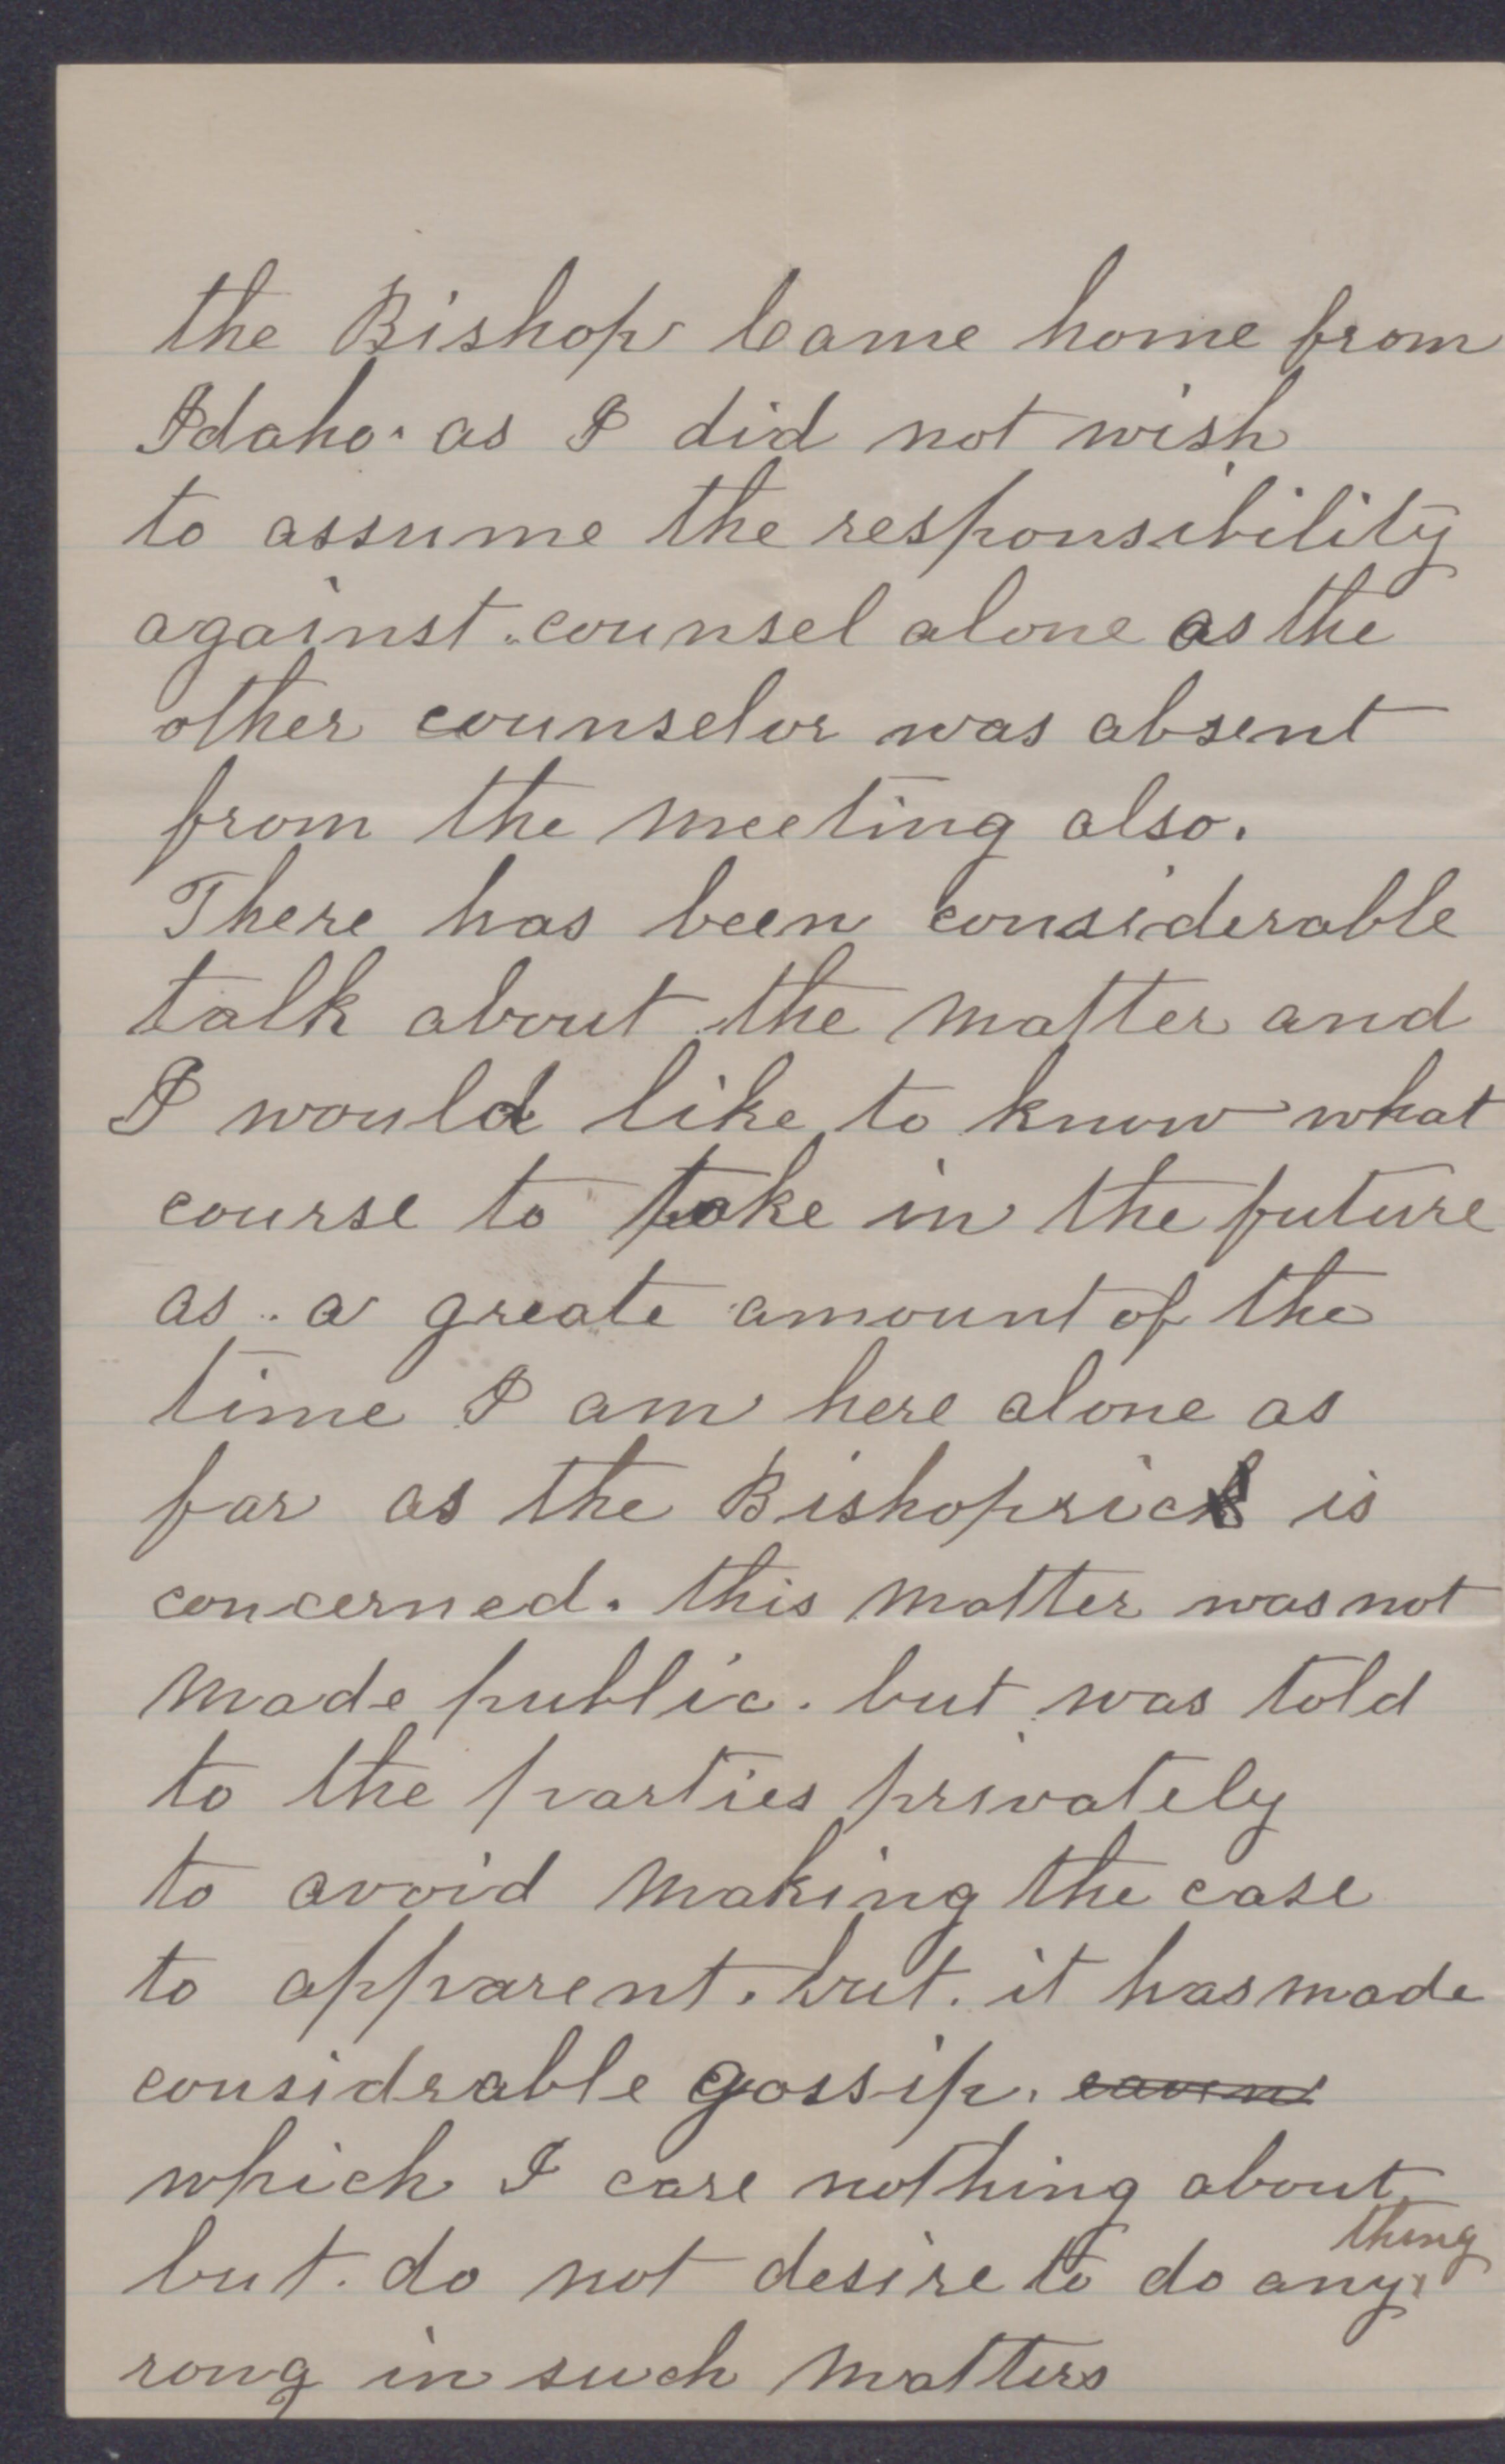 the Bishop Came home from
Idaho. as I did not wish
to assume the responsibility
against. counsel alone as the
other counselor was absent
from the meeting also.
There has been considerable
talk about the matter and
I would like to know what
course to take in the future
as. a greate amount of the
time I am here alone as
far as the Bishoprick is
concerned. this matter was not
made public. but was told
to the parties privately
to avoid making the case
to apparent. but. it has made
considrable gossip.
which I care nothing about
thing
but. do not desire to do any
rong in such matters